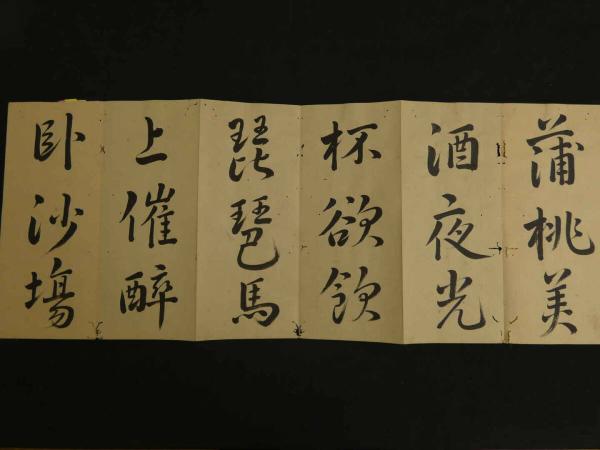 蒲桃美
酒夜光
杯欲飲
琵琶馬
上催醉
臥沙場